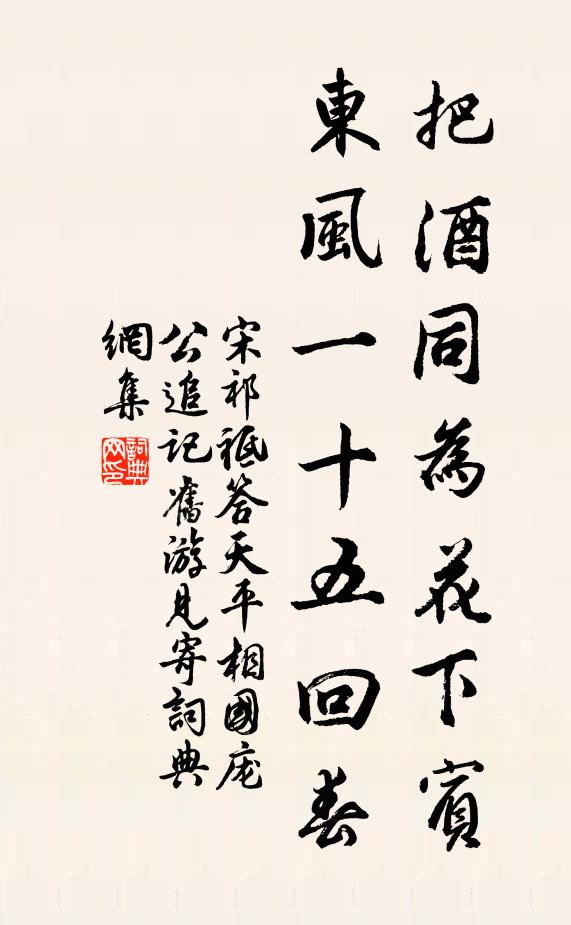 把酒同為花下賓
東風一十五回春
宋祁祗答天平相國庞
公追记舊游見寄詞典
網集
詞典
网印